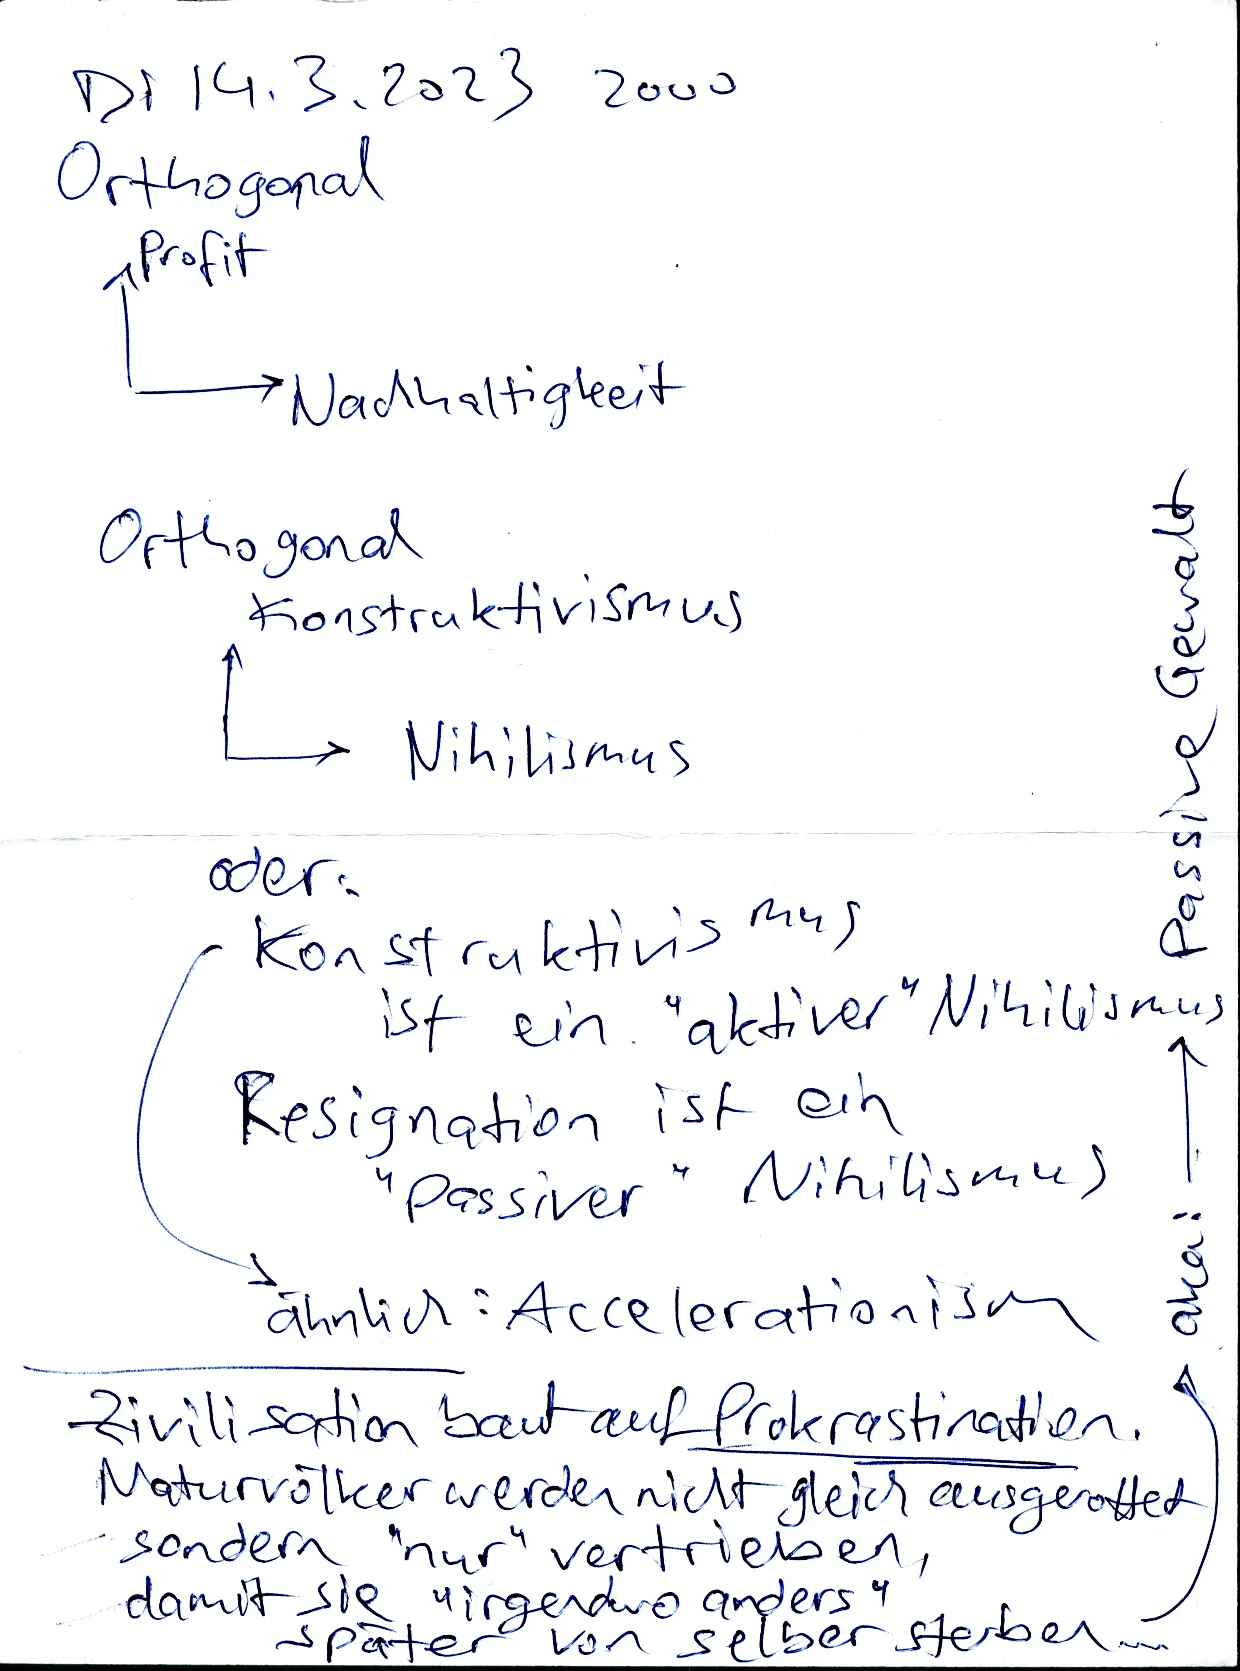 Di 14.3.2023 2000
Orthogonal
Profit
Nachhaltigkeit
Orthogonal
Konstruktivismus
Nihilismus
oder:
Konstruktivismus
ist ein "aktiver" Nihilismus
Resignation ist ein
"passiver" Nihilismus
ähnlich: Accelerationism
Zivilisation baut auf Prokrastination.
Naturvölker werden nicht gleich ausgerottet
sondern "nur" vertrieben,
damit sie "irgendwo anders"
später von selber sterben...
aka: Passive Gewalt